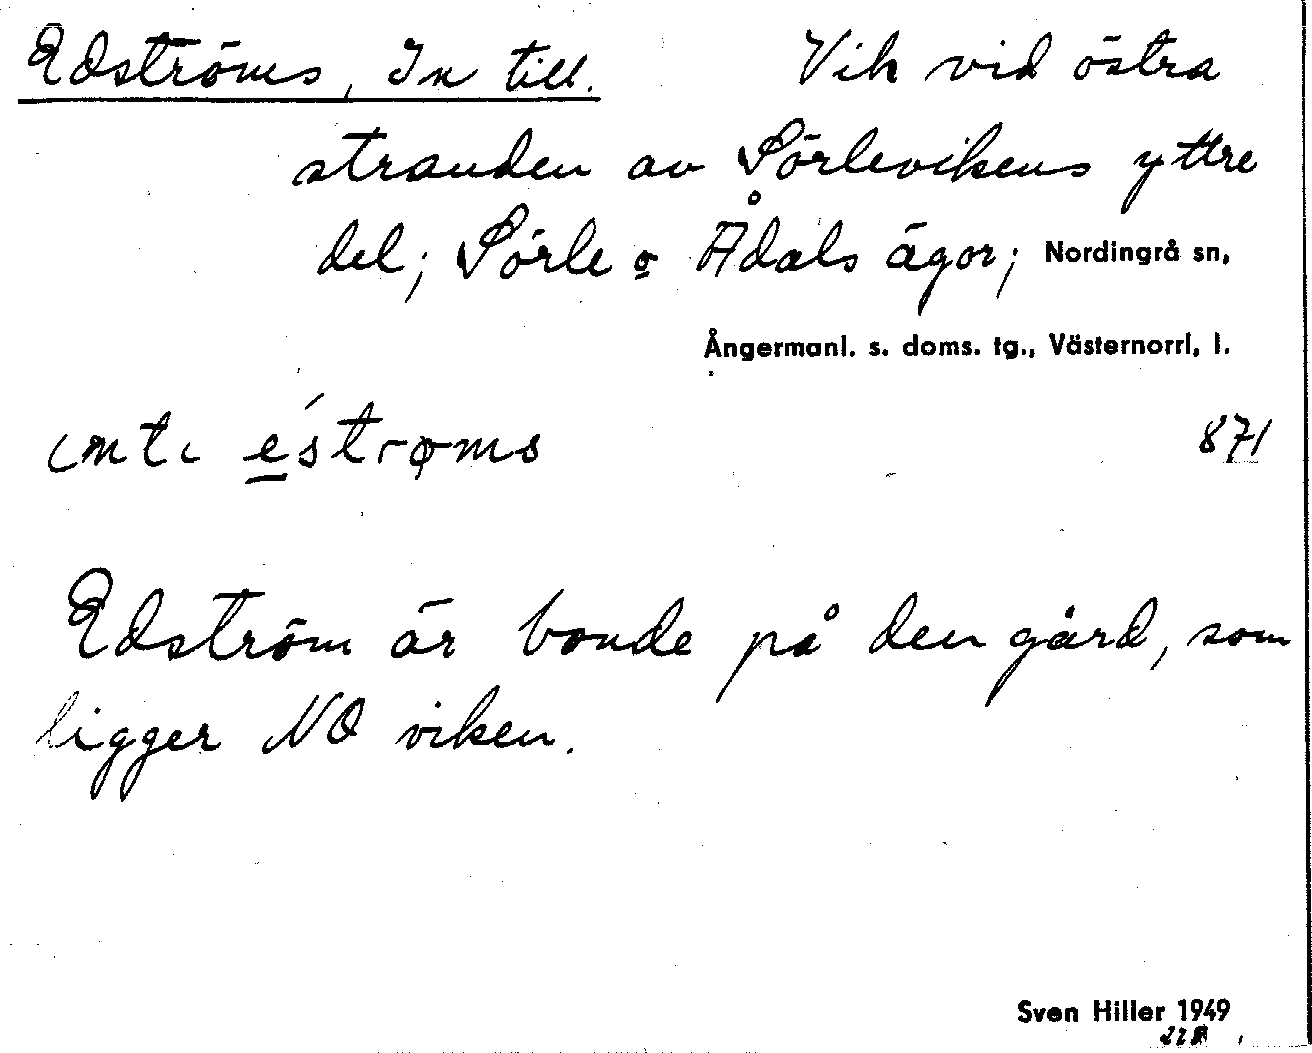 Edströms, In till. Vik vid östra
stranden av Sörlevikens yttre
del; Sörle o Ådals ägor; Nordingrå sn,
Ångermanl. s. doms. tg., Västernorrl, l.
871
Edström är bonde på den gård, som
ligger NO viken.
Sven Hiller 1949